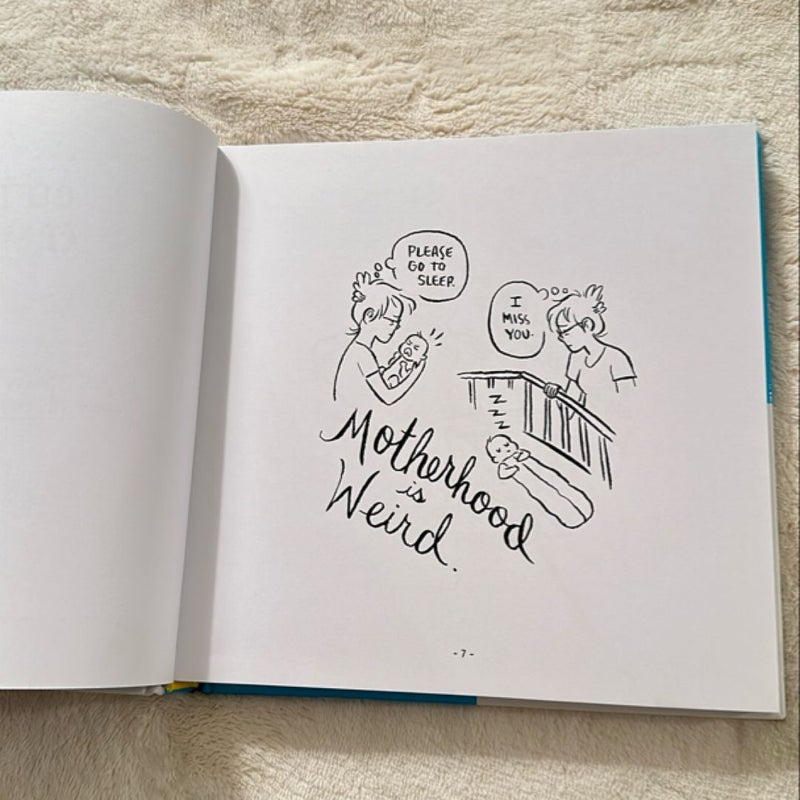 PLEASE
GO TO
SLEEP.
I
MISS
YOU.
Z
Z
Z
Motherhood
is
Weird.
-7-